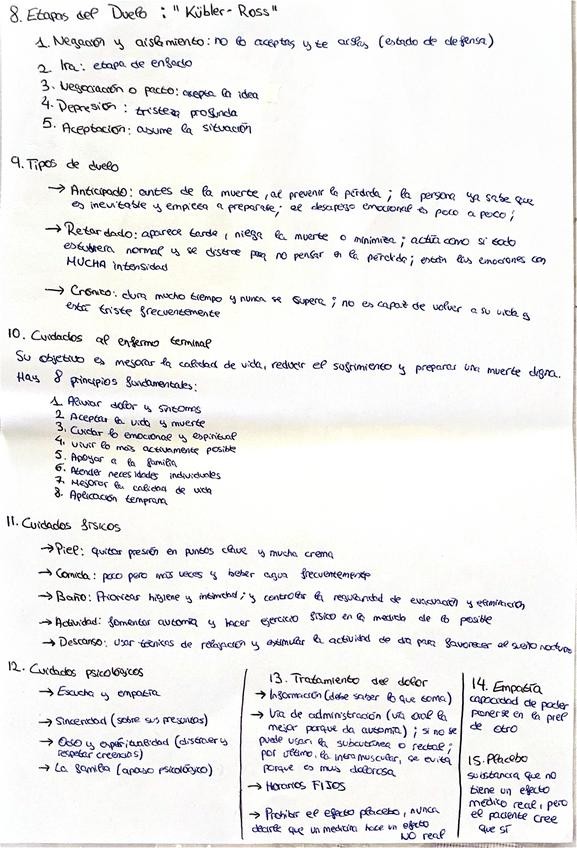 8. Etapas del Duelo: "Kübler-Ross"
1. Negación y aislamiento: no lo aceptas y te aislas (estado de defensa)
2. Ira: etapa de enfado
3. Negociación o pacto: acepta la idea
4. Depresión: tristeza profunda
5. Aceptación: asume la situación
9. Tipos de duelo
→ Anticipado: antes de la muerte, al prevenir la pérdida; la persona ya sabe que
es inevitable y empieza a prepararse; el desapego emocional es poco a poco;
→ Retardado: aparece tarde, niega la muerte o minimiza; actúa como si todo
estubiera normal y se distrae para no pensar en la pérdida; entran las emociones con
MUCHA intensidad
→ Crónico: dura mucho tiempo y nunca se supera; no es capaz de volver a su vida y
está triste frecuentemente
10. Cuidados al enfermo terminal
Su objetivo es mejorar la calidad de vida, reducir el sufrimiento y preparar una muerte digna.
Hay 8 principios fundamentales:
1. Aliviar dolor y síntomas
2. Aceptar la vida y muerte
3. Cuidar lo emocional y espiritual
4. Vivir lo más activamente posible
5. Apoyar a la familia
6. Atender necesidades individuales
7. Mejorar la calidad de vida
8. Aplicación temprana
11. Cuidados físicos
→ Piel: quitar presión en puntos clave y mucha crema
→ Comida: poco pero más veces y beber agua frecuentemente
→ Baño: Priorizar higiene e intimidad; y controlar la regularidad de evacuación y eliminación
→ Actividad: fomentar autonomía y hacer ejercicio físico en la medida de lo posible
→ Descanso: usar técnicas de relajación y estimular la actividad de día para favorecer el sueño nocturno
12. Cuidados psicológicos
→ Escucha y empatía
→ Sinceridad (sobre sus preguntas)
→ Ocio y espiritualidad (distraer y
respetar creencias)
→ La familia (apoyo psicológico)
13. Tratamiento del dolor
→ Información (debe saber lo que toma)
→ Vía de administración (vía oral la
mejor porque da autonomía); si no se
puede usan la subcutánea o rectal;
por último, la intramuscular, se evita
porque es muy dolorosa
→ Horarios FIJOS
→ Prohibir el efecto placebo, nunca
decirle que un medicina hace un efecto
NO real
14. Empatía
capacidad de poder
ponerse en la piel
de otro
15. Placebo
substancia que no
tiene un efecto
médico real, pero
el paciente cree
que sí